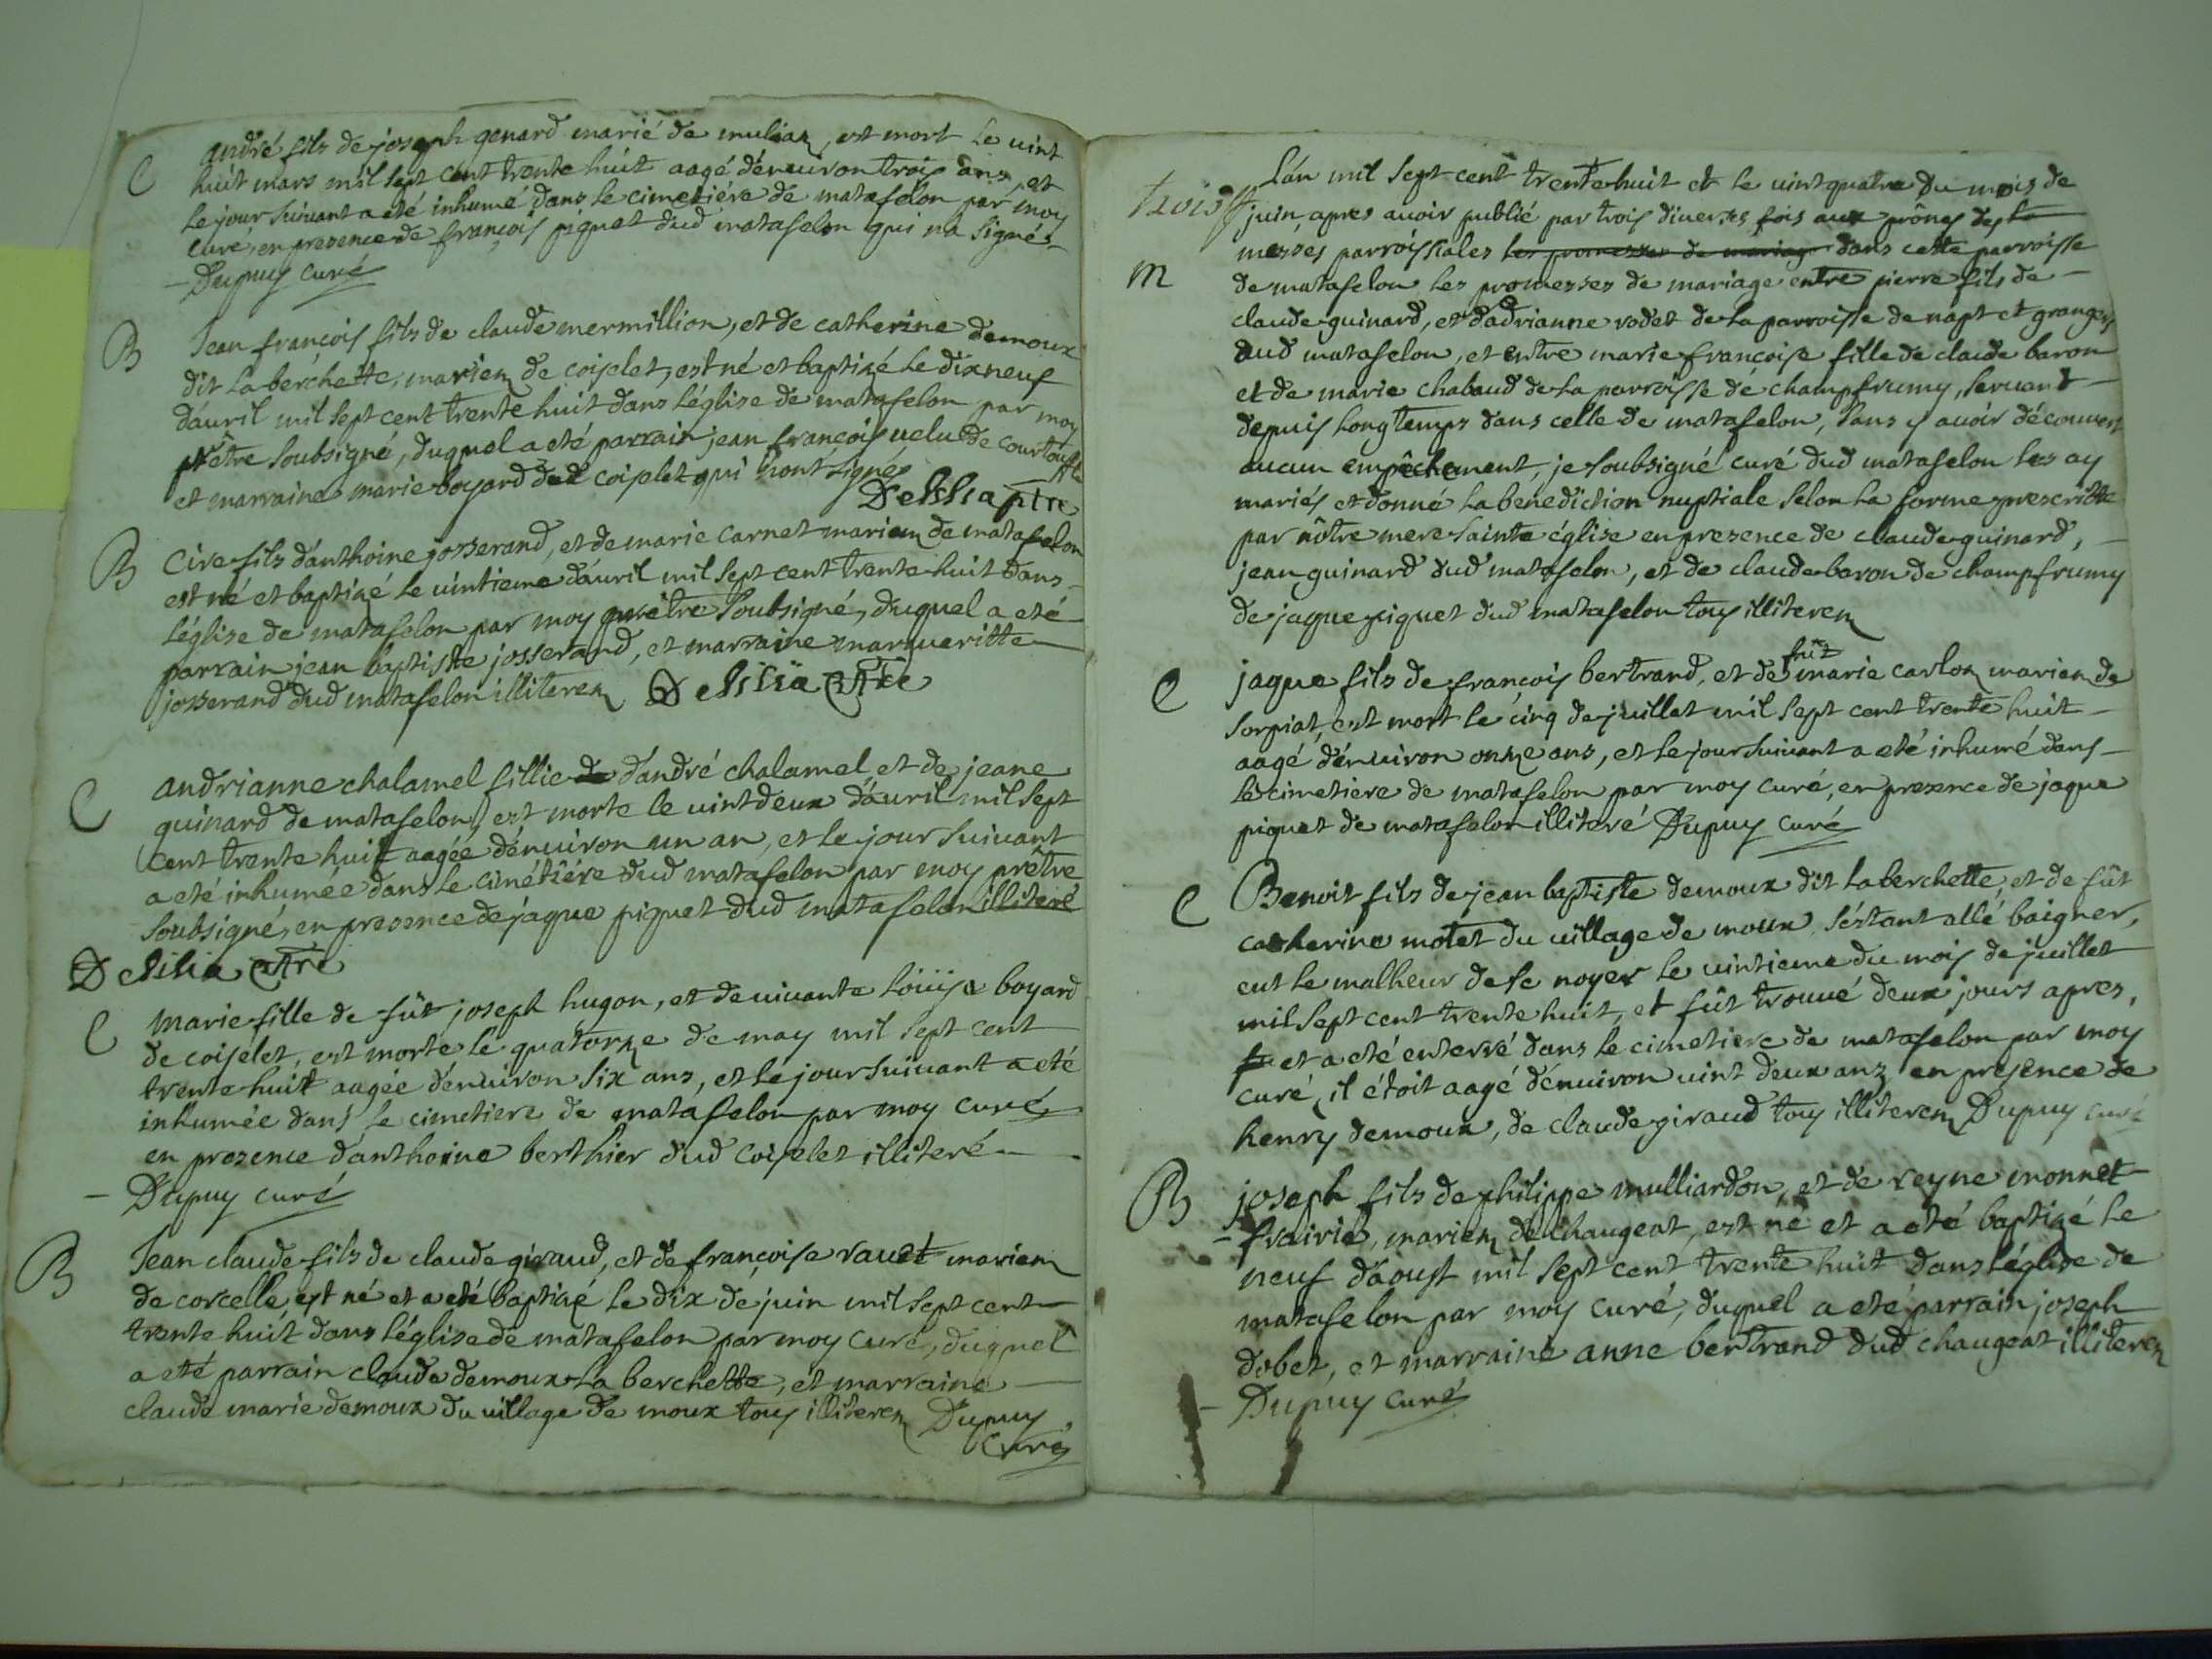 C
andré fils de joseph genard marié de muliaz, est mort le uint
huit mars mil sept cent trente huit aagé d'énuiron trois ans et
le jour suiuant a eté inhumé dans le cimetiére de matafelon par moy
curé, en presence de françois piquet dud matafelon qui na signés
Dupuy curé
B
Jean françois fils de claude mermillion, et de catherine demoux
dit la berchette, mariez de coiselet, est né et baptizé le dixneuf
d'auril mil sept cent trente huit dans l'église de matafelon par moy
prêtre soubsigné, duquel a eté parrain jean françois uelu de courtouffle
et marraine marie boyard dud coiselet qui n'ont signé
Delilia ptre
B
Cire fils d'anthoine josserand, et de marie carnet mariez de matafelon
est né et baptizé le uintieme d'auril mil sept cent trente huit dans
l'église de matafelon par moy prêtre soubsigné, duquel a eté
parrain jean baptiste josserand, et marraine margueritte
josserand dud matafelon illiterez Delilia ptre
C
andrianne chalamel fillie d'andré chalamel et de jeane
guinard de matafelon, est morte le uint deux d'auril mil sept
cent trente huit aagée d'énuiron un an, et le jour suiuant
a eté inhumée dans le cimétiére dud matafelon par moy prêtre
soubsigné, en presence de jaque piquet dud matafelon illiteré
Delilia ptre
C
marie fille de fût joseph hugon, et de uiuante loüise boyard
de coiselet, est morte le quatorze de may mil sept cent
trente huit aagée d'enuiron six ans, et le jour suiuant a eté
inhumée dans le cimetiere de matafelon par moy curé
en presence d'anthoine berthier dud coiselet illiteré
Dupuy curé
B
Jean claude fils de claude giraud, et de françoise rauet mariez
de corcelle est né et a eté baptizé le dix de juin mil sept cent
trente huit dans l'église de matafelon par moy curé, duquel
a eté parrain claude demoux la berchette, et marraine
claude marie demoux du uillage de moux tous illiterez Dupuy
curé
trois
L'an mil sept cent trente huit et le uint quatre du mois de
juin, apres auoir publié par trois diuerses fois aux prônes des
messes parroissiales les promesses de mariage dans cette parroisse
m
de matafelon les promesses de mariage entre pierre fils de
claude guinard, et d'adrianne rodet de la parroisse de napt et granges
dud matafelon, et entre marie françoise fille de claude baron
et de marie chabaud de la parroisse de champfrumy, seruant
depuis longtemps dans celle de matafelon, sans y auoir découuert
aucun empêchement, je soubsigné curé dud matafelon les ay
mariés et donné la benediction nuptiale selon la forme prescritte
par nôtre mere sainte église en presence de claude guinard,
jean guinard dud matafelon, et de claude baron de champfrumy
de jaque piquet dud matafelon tous illiterez
C
jaque fils de françois bertrand, et de fût marie carloz mariez de
sorpiat, est mort le cinq de juillet mil sept cent trente huit
aagé d'énuiron onze ans, et le jour suiuant a eté inhumé dans
le cimetiere de matafelon par moy curé, en presence de jaque
piquet de matafelon illiteré Dupuy curé
C
Benoit fils de jean baptiste demoux dit la berchette, et de fût
catherine motet du uillage de moux, s'éstant allé baigner,
eut le malheur de se noyer le uintieme du mois de juillet
mil sept cent trente huit, et fût trouué deux jours apres,
et a eté enterré dans le cimetiere de matafelon par moy
curé, il étoit aagé d'énuiron uint deux ans en presence de
henry demoux, de claude giraud tous illiterez Dupuy curé
B
joseph fils de philippe mulliardon, et de reyne monnet
frairie, mariez de chaugeat, est né et a eté baptizé le
neuf d'aoust mil sept cent trente huit dans l'église de
matafelon par moy curé, duquel a eté parrain joseph
dobet, et marraine anne bertrand dud chaugeat illiterez
Dupuy curé